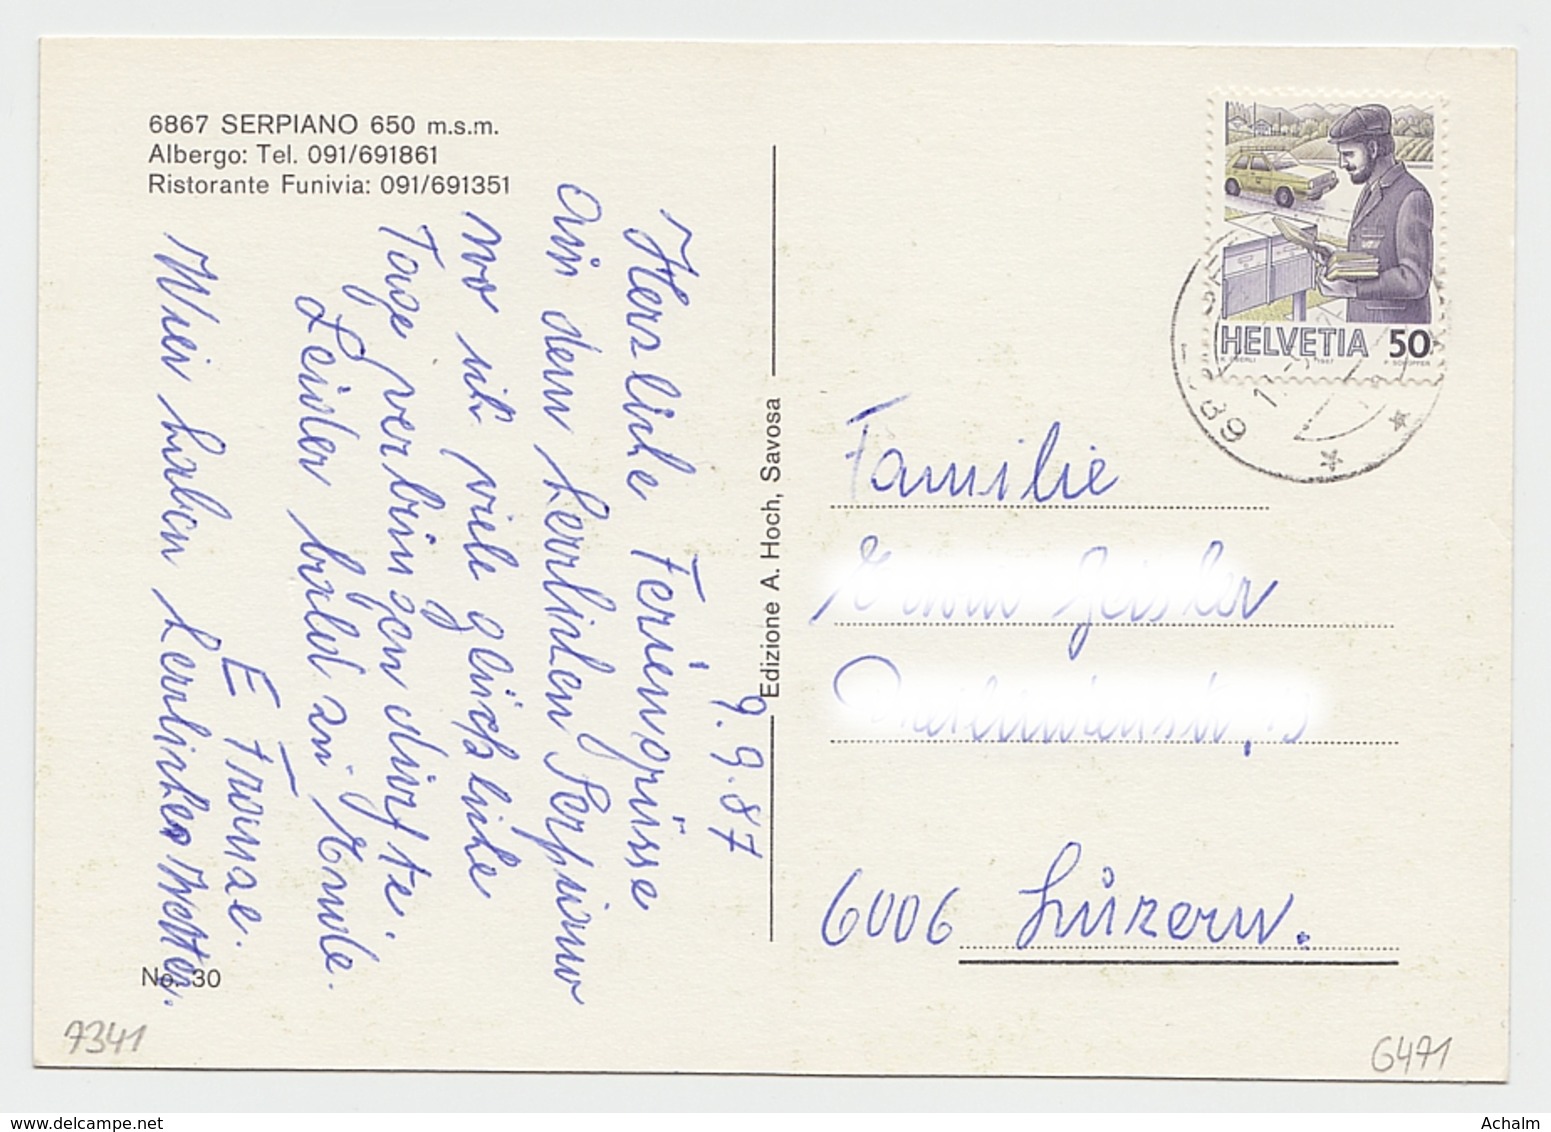 6867 SERPIANO 650 m.s.m.
Albergo: Tel. 091/691861
Ristorante Funivia: 091/691351
9.9.87
Herzliche Feriengrüsse
aus dem herrlichen Serpiano
wo ich viele glückliche
Tage verbringen durfte.
Leider bald zu Ende.
E
Wier haben herrliches Wetter.
No. 30
Edizione A. Hoch, Savosa
HELVETIA 50
1987
Familie
6006 Luzern.
7341
6471
www.delcampe.net
Achalm